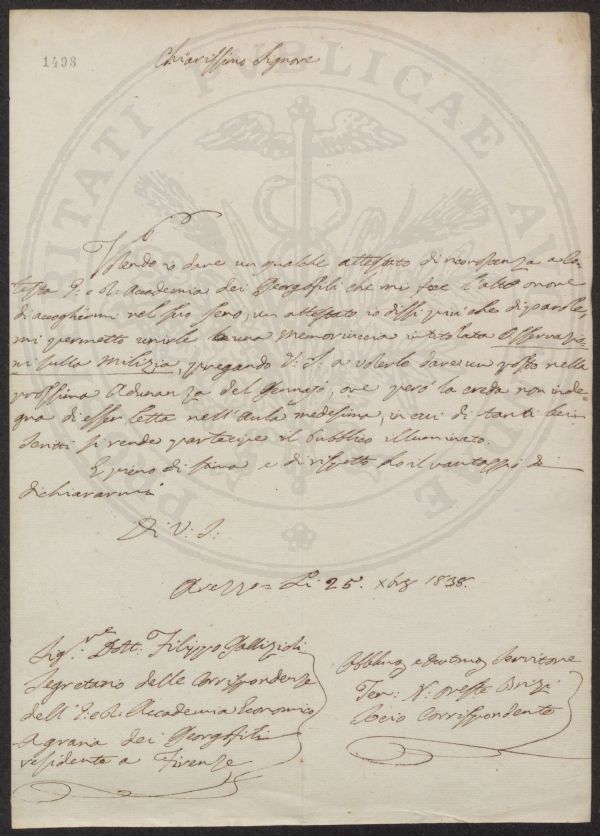 1498
Chiarissimo Signore
Volendo io dare un qualche attestato di riconoscenza a co-
testa I. e R. Accademia dei Georgofili che mi fece l'alto onore
di accogliermi nel suo seno, un attestato io dissi più che di parole,
mi permetto unirle una Memoriuccia intitolata Osservazio-
ni sulla Milizia, pregando V. S. a volerle dare un posto nella
prossima Adunanza del Gennajo, ove però la creda non inde-
gna di esser letta nell'Aula medesima, in cui di tanti bei
scritti si rende partecipe il pubblico illuminato.
E pieno di stima e di rispetto ho il vantaggio di
dichiararmi
Di V. S.
Arezzo = Li 25. Xbre 1838.
Sig.re Dott. Filippo Gallizioli
Segretario delle Corrispondenze
dell'I. e R. Accademia Economico
Agraria dei Georgofili
residente a Firenze
Obblmo e Devotmo Servitore
Ten: N. Oreste Brizi
Socio Corrispondente
PROSPERITATI PUBLICAE AUGENDAE